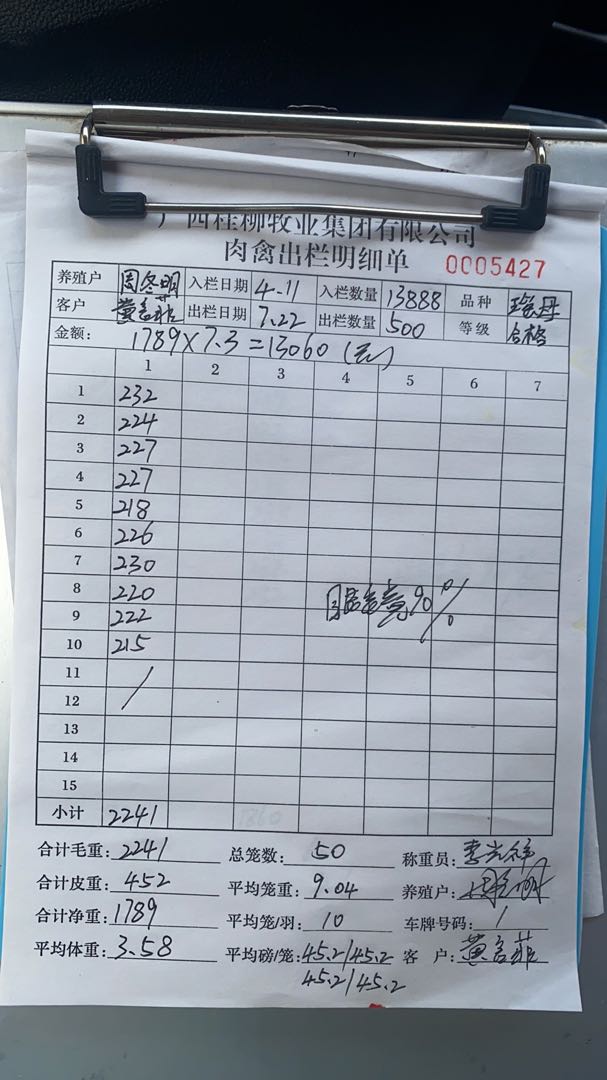 广西桂柳牧业集团有限公司
肉禽出栏明细单 0005427
养殖户 周冬明 入栏日期 4.11 入栏数量 13888 品种
客户 黄言菲 出栏日期 7.22 出栏数量 500 等级 合格
金额: 1789×7.3=13060(元)
1 2 3 4 5 6 7
1 232
2 224
3 227
4 227
5 218
6 226
7 230
8 220
9 222
10 215
11 /
12
13
14
15
小计 2241
合计毛重: 2241 总笼数: 50 称重员:
合计皮重: 452 平均笼重: 9.04 养殖户:
合计净重: 1789 平均笼/羽: 10 车牌号码: /
平均体重: 3.58 平均磅/笼: 45.2/45.2 客 户: 黄言菲
45.2/45.2